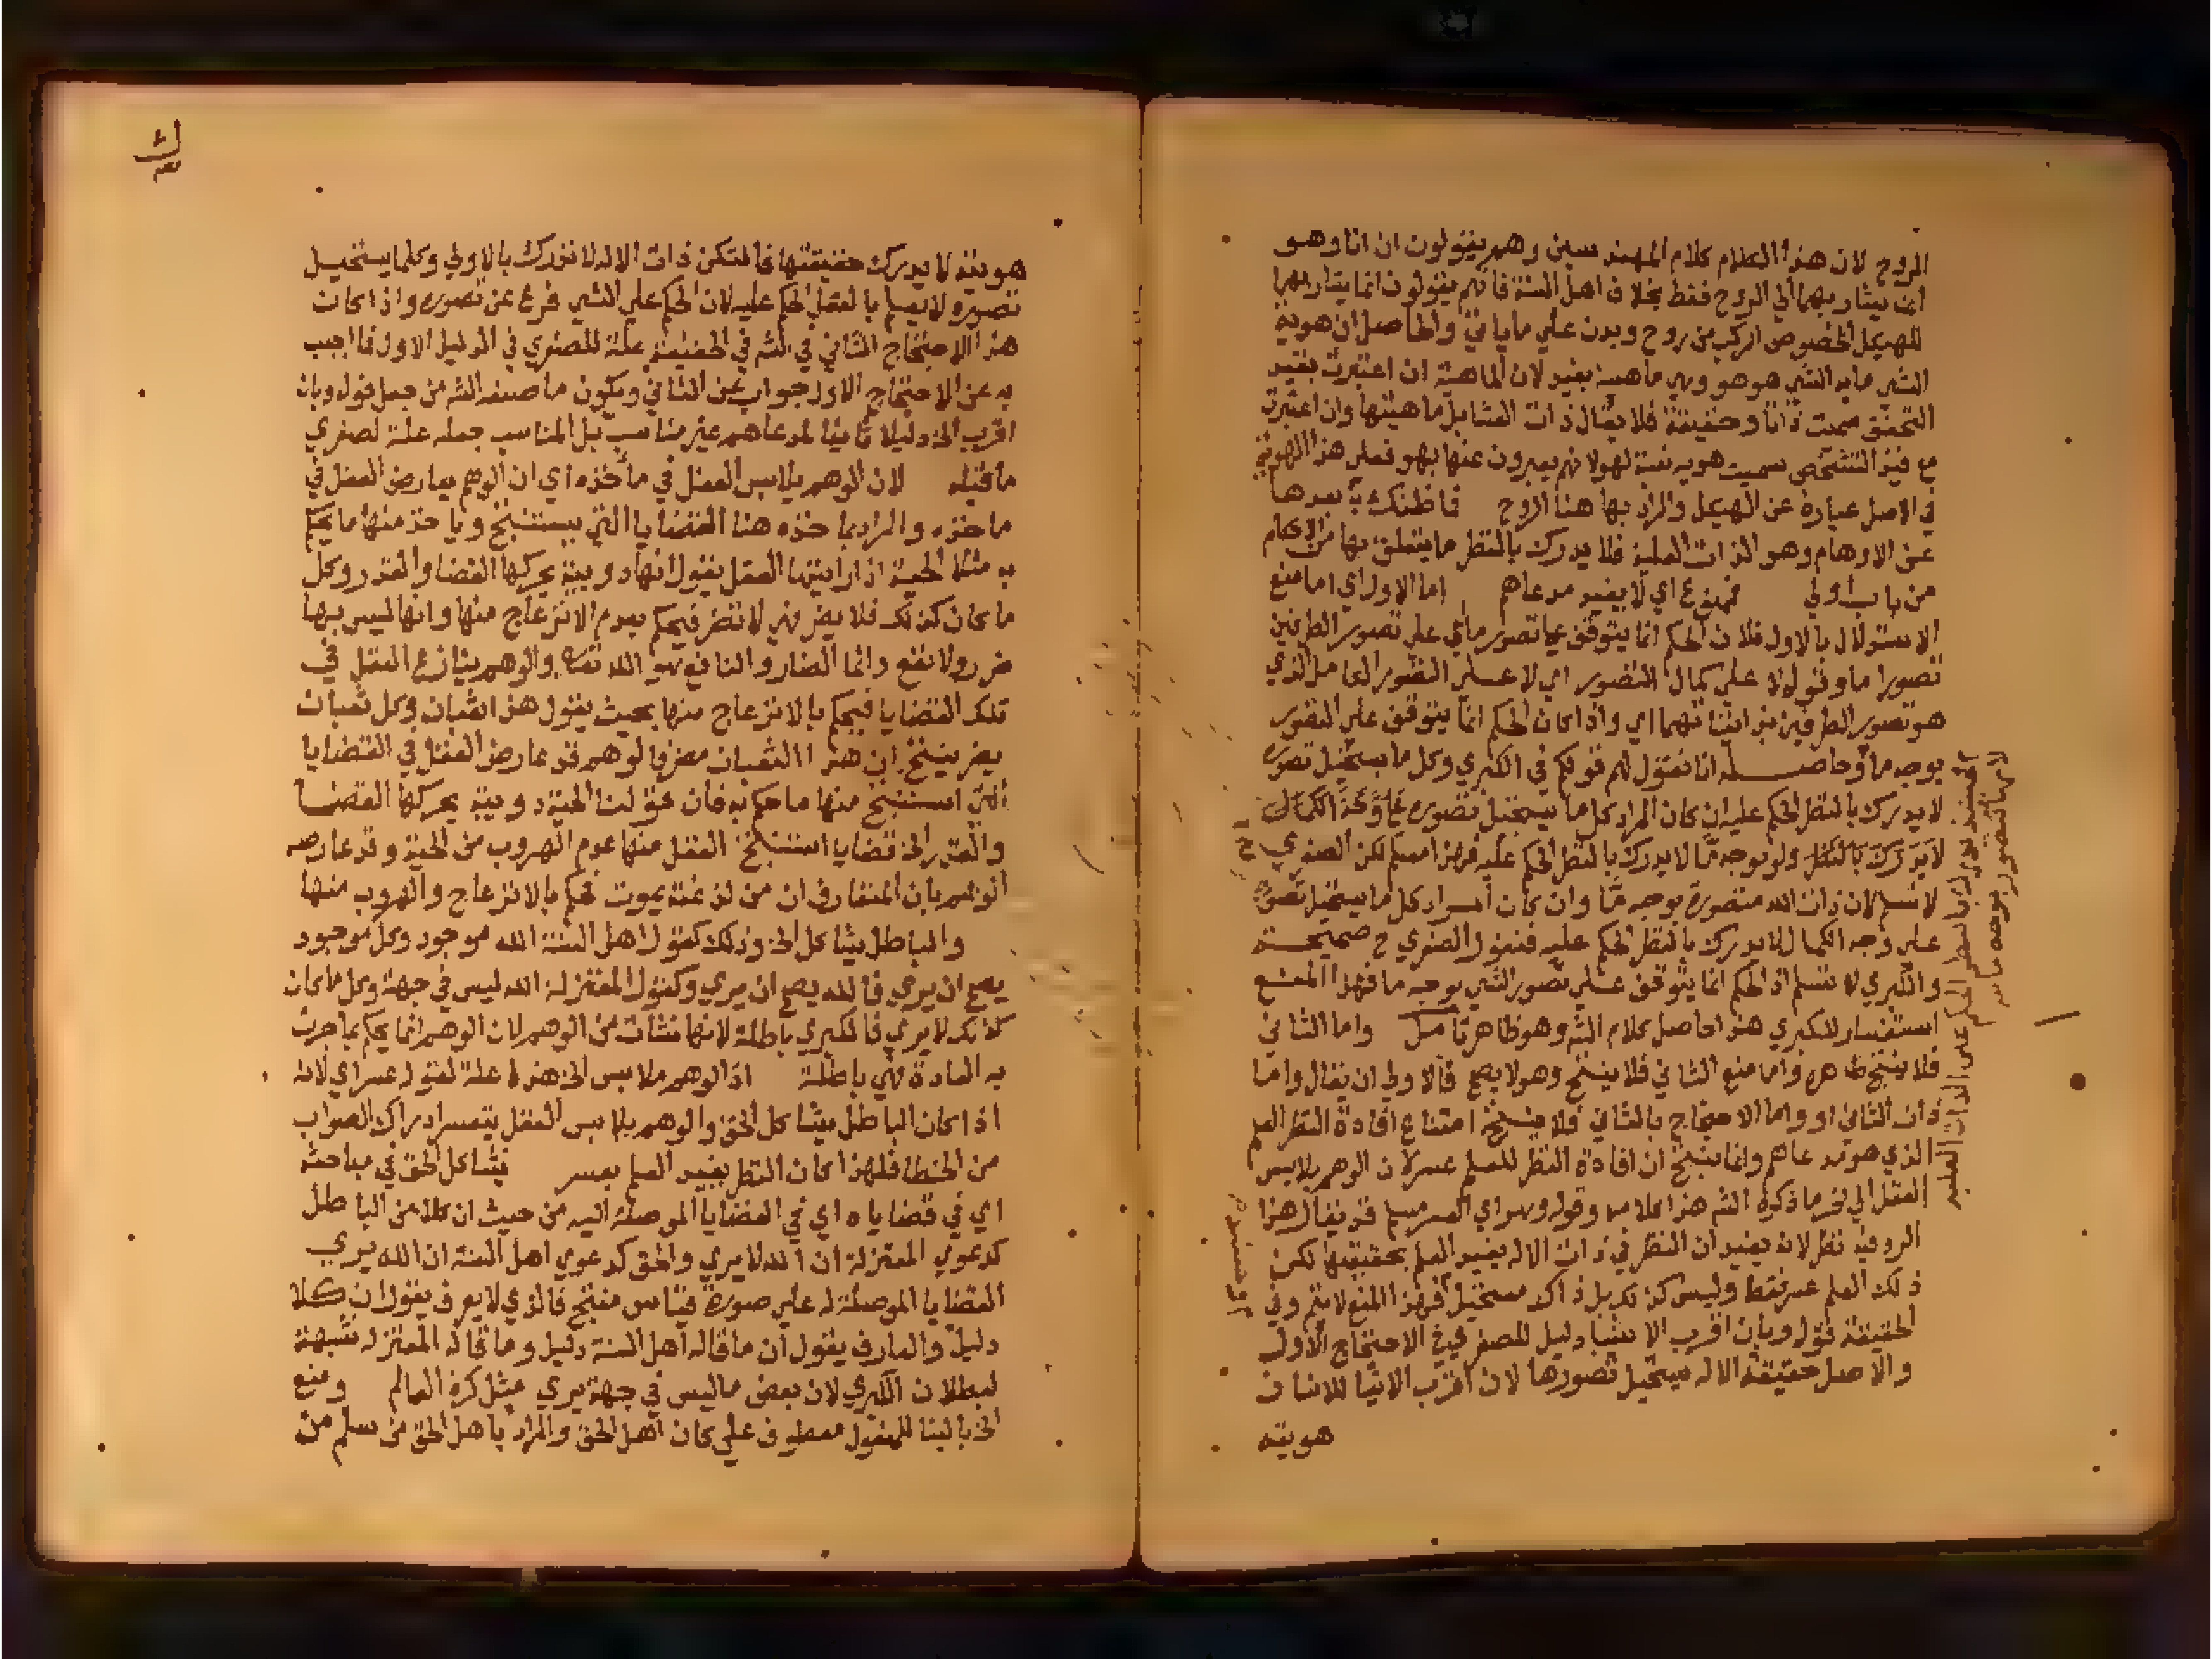 الروح لان هذا الكلام كلام المهندسين وهم يقولون ان انا وهو
انما يشار بهما الي الروح فقط بخلاف اهل السنة فانهم يقولون انما يشار بهما
للهيكل المخصوص المركب من روح وبدن علي ما ياتي والحاصل ان هوية
الشي ما به الشي هو هو وهي ماهيته بقيد لان الماهية ان اعتبرت بقيد
التحقق سميت ذاتا وحقيقة فلا يقال ذات العنقا بل ماهيتها وان اعتبرت
مع قيد التشخص سميت هوية نسبة لهو لانهم يعبرون عنها بهو فعلم هذا الهوية
في الاصل عبارة عن الهيكل والمراد بها هنا الروح فما ظنك بابعدها
عن الاوهام وهو الذات العلية فلا يدرك بالنظر ما يتعلق بها من الاحكام
من باب اولي ممنوع اي لا يفيد مدعاهم اما الاول اي اما منع
الاستدلال بالاول فلان الحكم انما يتوقف علي تصور ما اي علي تصور الطرفين
تصورا ما وقوله لا علي كمال التصور اي لا علي التصور الكامل الذي
هو تصور الطرفين بذاتياتهما اي واذا كان الحكم انما يتوقف علي التصور
بوجه ما وحاصله انا نقول لهم قولكم في الكبري وكل ما يستحيل تصوره
لا يدرك بالنظر الحكم عليه ان كان المراد كل ما يستحيل تصوره
لا يدرك بالنظر ولو بوجه ما لا يدرك بالنظر الحكم عليه فهذا مسلم لكن الصغري
لا تسلم لان ذات الله متصورة بوجه ما وان كان المراد كل ما يستحيل تصوره
علي وجه الكمال لا يدرك بالنظر الحكم عليه فنقول الصغري ح صحيحة
والكبري لا تسلم اذ الحكم انما يتوقف علي تصور الشي بوجه ما فهذا المنع
استفسار للكبري هذا حاصل كلام الشه وهو ظاهر تامل واما الثاني
فلا ينتج ظاهره واما منع الثاني فلا ينتج وهو لا يصح فالاولي ان يقال واما
ذات الثاني او واما الاحتجاج بالثاني فلا ينتج امتناع افادة النظر العلم
الذي هو مدعاهم وانما ينتج ان افادة النظر للعلم عسر لان الوهم يلابس
العقل الي اخر ما ذكره الشه هذا كلامه وقوله وهو اي العسر مسلم قد يقال هذا
الرد فيه نظر لانه يفيد ان النظر في ذات الاله يفيد العلم بحقيقتها لكن
ذلك العلم عسر فقط وليس كذلك بل ذاك مستحيل فهذا المنع لا يتم وفي
الحقيقة قوله وبان اقرب الاشيا دليل للصغري في الاحتجاج الاول
والاصل حقيقة الاله يستحيل تصورها لان اقرب الاشيا للانسان
هويته
هويته لا يدرك حقيقتها فالتكن ذات الاله لا تدرك بالاولي وكلما يستحيل
تصوره لا يعلم بالعقل الحكم عليه لان الحكم علي الشي فرع عن تصوره واذا كان
هذا الاحتجاج الثاني في الشه في الحقيقة علة للصغري في الدليل الاول فما اجيب
به عن الاحتجاج الاول جواب عن الثاني ويكون ما صنعه الشه من جعل قوله وبان
اقرب الخ دليلا ثانيا لمدعاهم غير مناسب بل المناسب جعله علة لصغري
ما قبله لان الوهم يلابس العقل في ماخذه اي ان الوهم يعارض العقل في
ماخذه والمراد بماخذه هنا القضايا التي يستنتج وياخذ منها ما يحكم
به مثلا الحية اذا رايتها العقل يقول انها دويبة يحركها القضا والقدر وكل
ما كان كذلك فلا يضر فهي لا تضر فيحكم بعدم الانزعاج منها وانها ليس بها
ضرر ولا نفع وانما الضار والنافع هو الله تعالي والوهم ينازع العقل في
تلك القضايا فيحكم بالانزعاج منها بحيث يقول هذا ثعبان وكل ثعبان
يضر ينتج ان هذا الثعبان مضر فالوهم قد عارض العقل في القضايا
التي استنتج منها ما حكم به فان قولنا الحية دويبة يحركها القضا
والقدر الخ قضايا استنتج العقل منها عدم الهروب من الحية وقد عارضه
الوهم بان المتعارف ان من لدغته يموت فحكم بالانزعاج والهروب منها
والباطل يشاكل الخ وذلك كقول اهل السنة الله موجود وكل موجود
يصح ان يري فالله يصح ان يري وكقول المعتزلة الله ليس في جهة وكل ما كان
كذلك لا يري فالكبري باطلة لانها نشات من الوهم لان الوهم انما يحكم بما جرت
به العادة فهي باطلة اذ الوهم ملابس الخ هذا علة لقوله عسر اي لانه
اذا كان الباطل يشاكل الحق والوهم يلابس العقل يتعسر ادراك الصواب
من الخطا فلهذا كان النظر يفيد العلم بعسر فيشاكل الحق في مباحثه
اي في قضاياه اي في القضايا الموصلة اليه من حيث ان كلا من الباطل
كدعوي المعتزلة ان الله لا يري والحق كدعوي اهل السنة ان الله يري
القضايا الموصلة له علي صورة قياس منتج فالذي لا يعرف يقول ان كلا
دليل والعارف يقول ان ما قاله اهل السنة دليل وما قاله المعتزلة شبهة
لبطلان الكبري لان بعض ما ليس في جهة يري مثل كرة العالم ومنع
الخ بالبنا للمفعول معطوف علي كان اهل الحق والمراد باهل الحق من سلم من